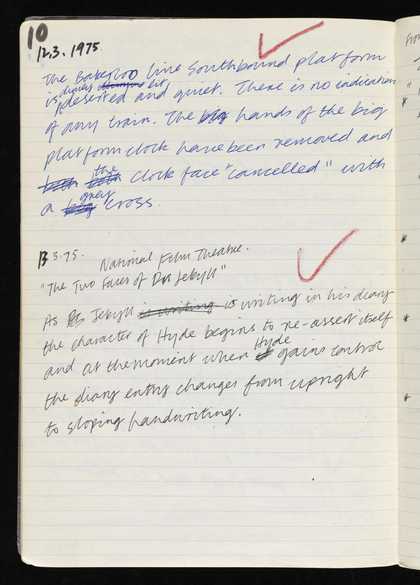 10
12.3.1975
The Bakerloo line Southbound platform
is dimly lit,
deserted and quiet. There is no indication
of any train. The hands of the big
platform clock have been removed and
the clock face "cancelled" with
a grey cross.
13.3.75. National Film Theatre.
"The Two Faces of Dr Jekyll"
As Jekyll is writing in his diary
the character of Hyde begins to re-assert itself
and at the moment when Hyde gains control
the diary entry changes from upright
to sloping handwriting.